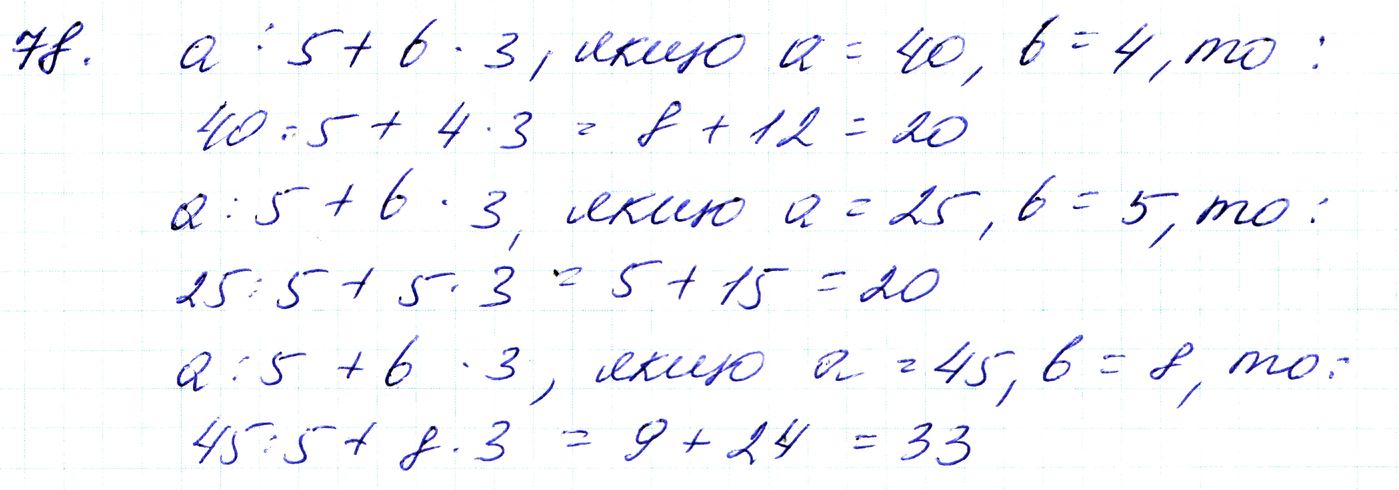 78. a : 5 + b · 3, якщо a = 40, b = 4, то :
40 : 5 + 4 · 3 = 8 + 12 = 20
a : 5 + b · 3, якщо a = 25, b = 5, то :
25 : 5 + 5 · 3 = 5 + 15 = 20
a : 5 + b · 3, якщо a = 45, b = 8, то :
45 : 5 + 8 · 3 = 9 + 24 = 33